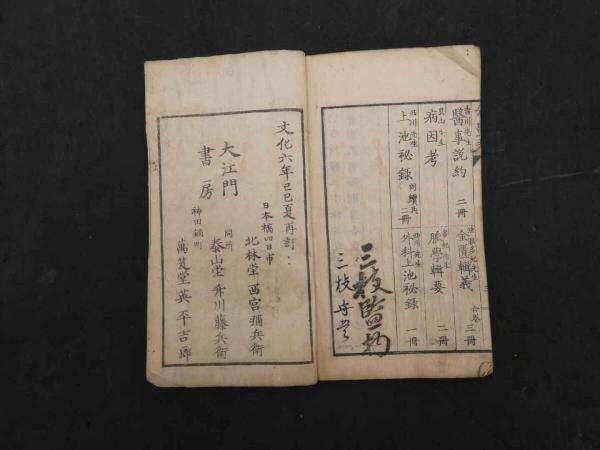 香川先生
醫事説約 二冊
金匱輯義 合巻 三冊
病因考
脉學輯要 二冊
上池秘録 同續共 二冊
外科上池秘録 一冊
三枝監物
三枝
文化六年己巳夏再訂
大江門
書房
日本橋四日市
北林堂 西宮彌兵衛
同所
泰山堂 舛川藤兵衛
神田鍋町
萬笈堂 英平吉郎